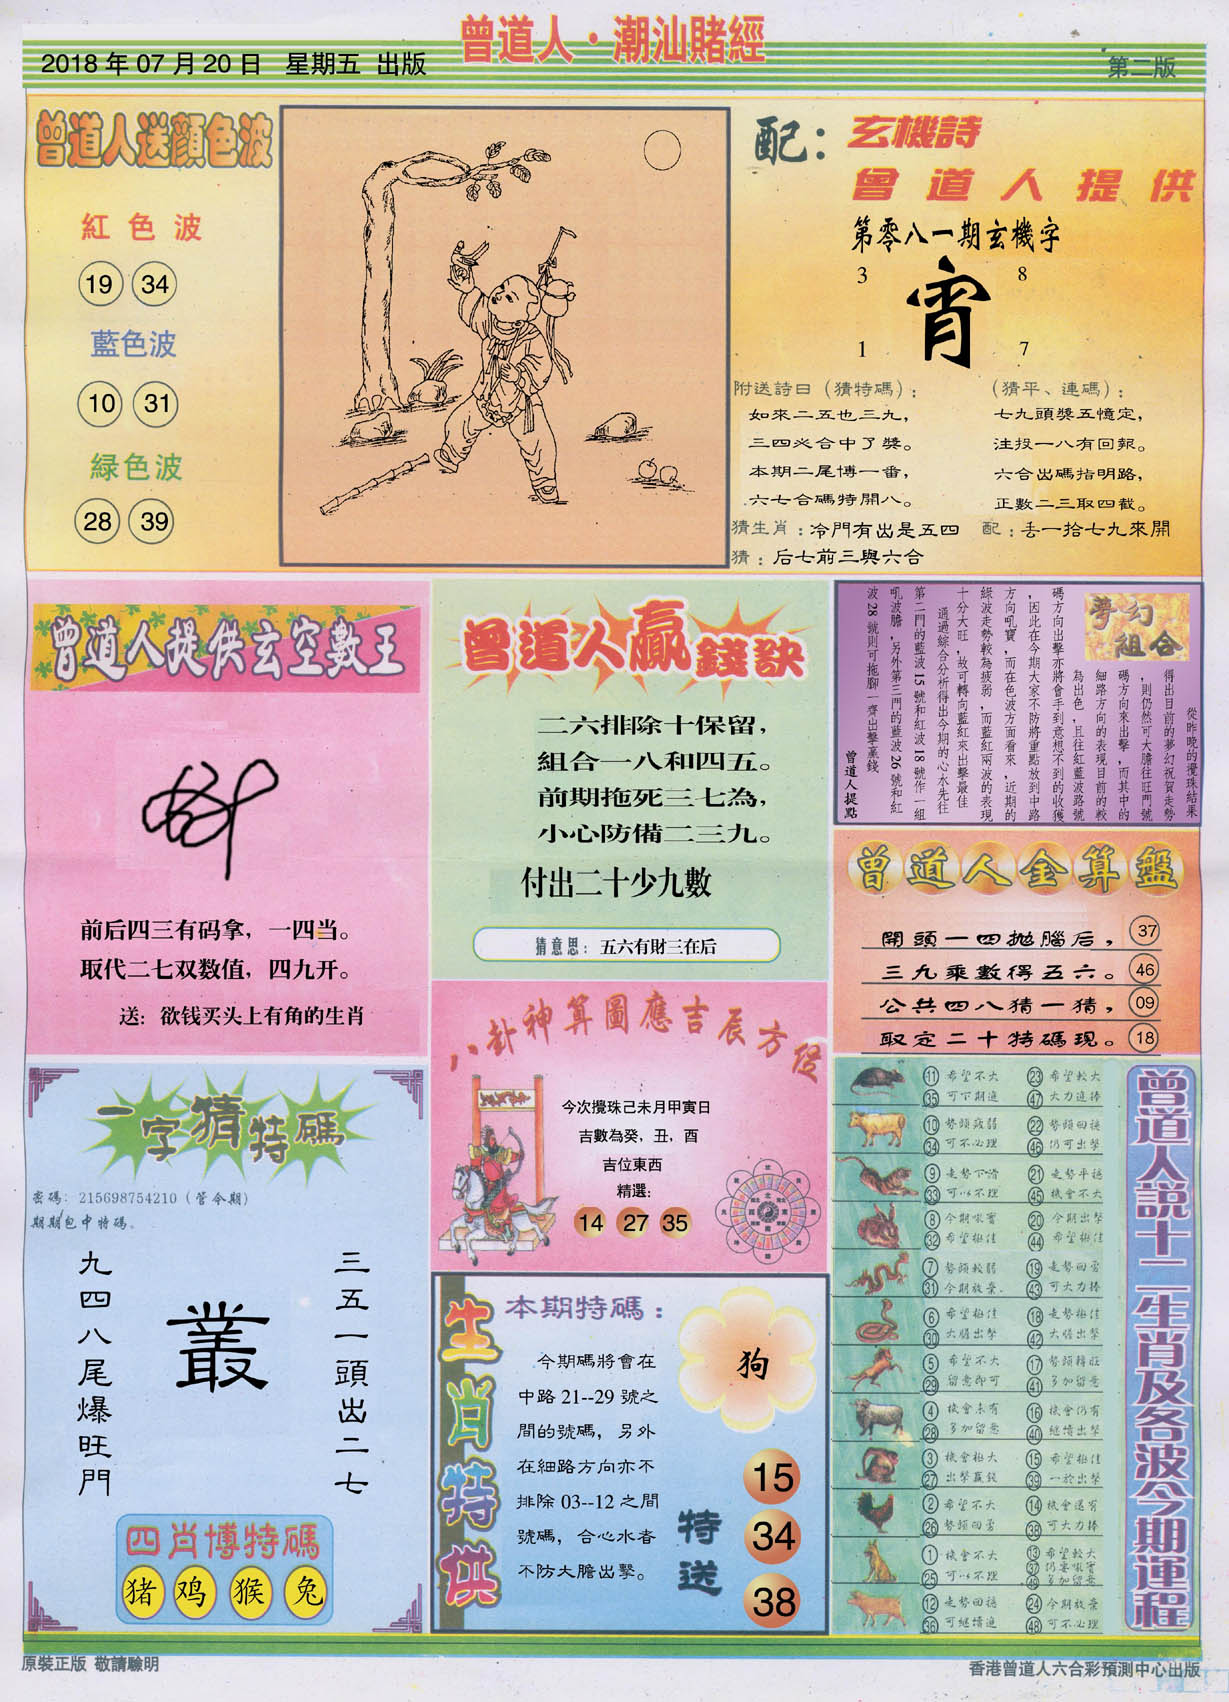 曾道人·潮汕賭經
2018 年 07 月 20 日 星期五 出版
第二版
曾道人送顏色波
紅色波
19 34
藍色波
10 31
綠色波
28 39
配：玄機詩
曾道人提供
第零八一期玄機字
3 8
宵
1 7
附送詩曰（猜特碼）：
如來二五也三九，
三四必合中了獎。
本期二尾博一番，
六七合碼特開八。
（猜平、連碼）：
七九頭獎五憶定，
注投一八有回報。
六合出碼指明路，
正數二三取四截。
猜生肖：冷門有出是五四
配：丢一拾七九來開
猜：后七前三與六合
曾道人提供玄空數王
前后四三有码拿，一四当。
取代二七双数值，四九开。
送：欲钱买头上有角的生肖
曾道人贏錢訣
二六排除十保留，
組合一八和四五。
前期拖死三七為，
小心防備二三九。
付出二十少九數
猜意思：五六有財三在后
夢幻組合
從昨晚的攪珠結果
得出目前的夢幻祝賀走勢
，則仍然可大膽往旺門號
碼方向來出擊，而其中的
細路方向的表現目前的較
為出色，且往紅藍波路號
碼方向出擊亦將會手到意想不到的收獲
，因此在今期大家不防將重點放到中路
方向吼寶，而在色波方面看來，近期的
綠波走勢較為疲弱，而藍紅兩波的表現
十分大旺，故可轉向藍紅來出擊最佳
通過綜合分析得出今期的心水先往
第二門的藍波 15 號和紅波 18 號作一組
吼波膽，另外第三門的藍波 26 號和紅
波 28 號則可拖腳一齊出擊贏錢
曾道人提點
曾道人金算盤
開頭一四拋腦后， 37
三九乘數得五六。 46
公共四八猜一猜， 09
取定二十特碼現。 18
八卦神算圖應吉辰方位
今次攪珠己未月甲寅日
吉數為癸，丑，酉
吉位東西
精選:
14 27 35
一字猜特碼
密碼：215698754210（管令期）
期期包中特碼。
九四八尾爆旺門
叢
三五一頭出二七
四肖博特碼
猪 鸡 猴 兔
生肖特供
本期特碼：
今期碼將會在
中路 21--29 號之
間的號碼，另外
在細路方向亦不
排除 03--12 之間
號碼，合心水者
不防大膽出擊。
狗
特送
15
34
38
曾道人説十二生肖及各波今期運程
11 希望不大 23 希望較大
35 可下期追 47 大力追捧
10 勢頭疲弱 22 勢頭回穩
34 可不必理 46 仍可出擊
9 走勢下滑 21 走勢平穩
33 可以不理 45 機會不大
8 今期吼寶 20 今期出擊
32 希望極佳 44 希望極佳
7 勢頭較弱 19 走勢回勇
31 今期放棄 43 可大力捧
6 希望極佳 18 走勢極佳
30 大膽出擊 42 大膽出擊
5 希望不大 17 勢頭轉旺
29 留意即可 41 多加留意
4 機會未有 16 機會仍有
28 多加留意 40 繼續出擊
3 機會極大 15 希望極佳
27 出擊贏錢 39 一於出擊
2 希望不大 14 機會還有
26 勢頭回勇 38 可大力捧
1 機會不大 13 希望較大
25 可以不理 37 仍要吼寶
49 多加留意
12 走勢回穩 24 今期放棄
36 可繼續追 48 可不必理
原裝正版 敬請驗明
香港曾道人六合彩預測中心出版